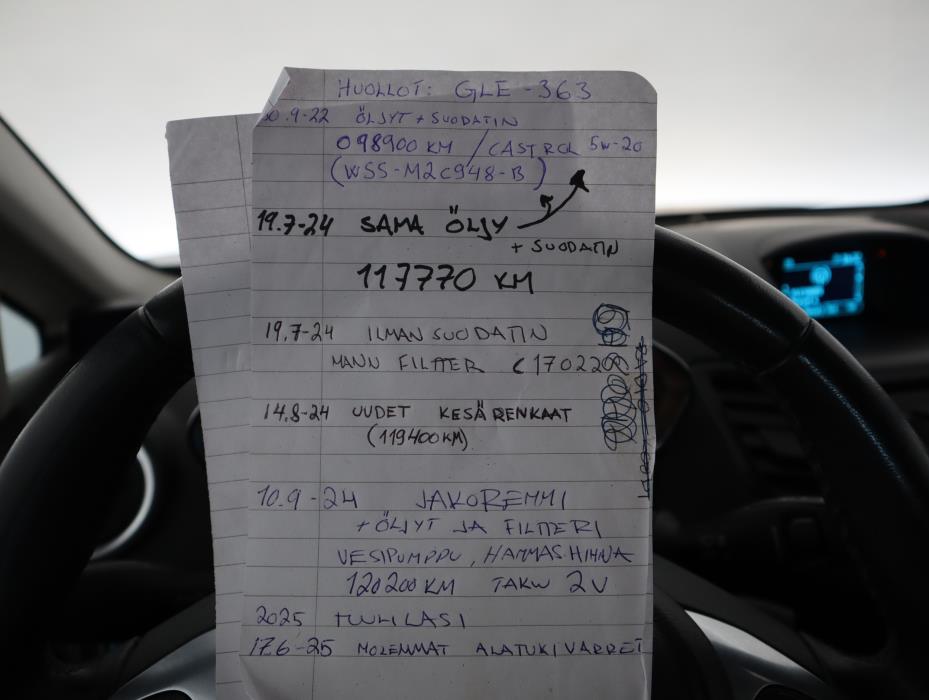 HUOLLOT: GLE-363
30.9-22 ÖLJYT + SUODATIN
098900 KM / CASTROL 5W-20
(WSS-M2C948-B)
19.7-24 SAMA ÖLJY
+ SUODATIN
117770 KM
19.7-24 ILMANSUODATIN
MANN FILTTER C17022
14.8-24 UUDET KESÄRENKAAT
(119400KM)
10.9-24 JAKOREMMI
+ ÖLJYT JA FILTTERI
VESIPUMPPU, HAMMASHIHNA
120200KM TAKUU 2V
2025 TUULILASI
17.6-25 MOLEMMAT ALATUKIVARRET